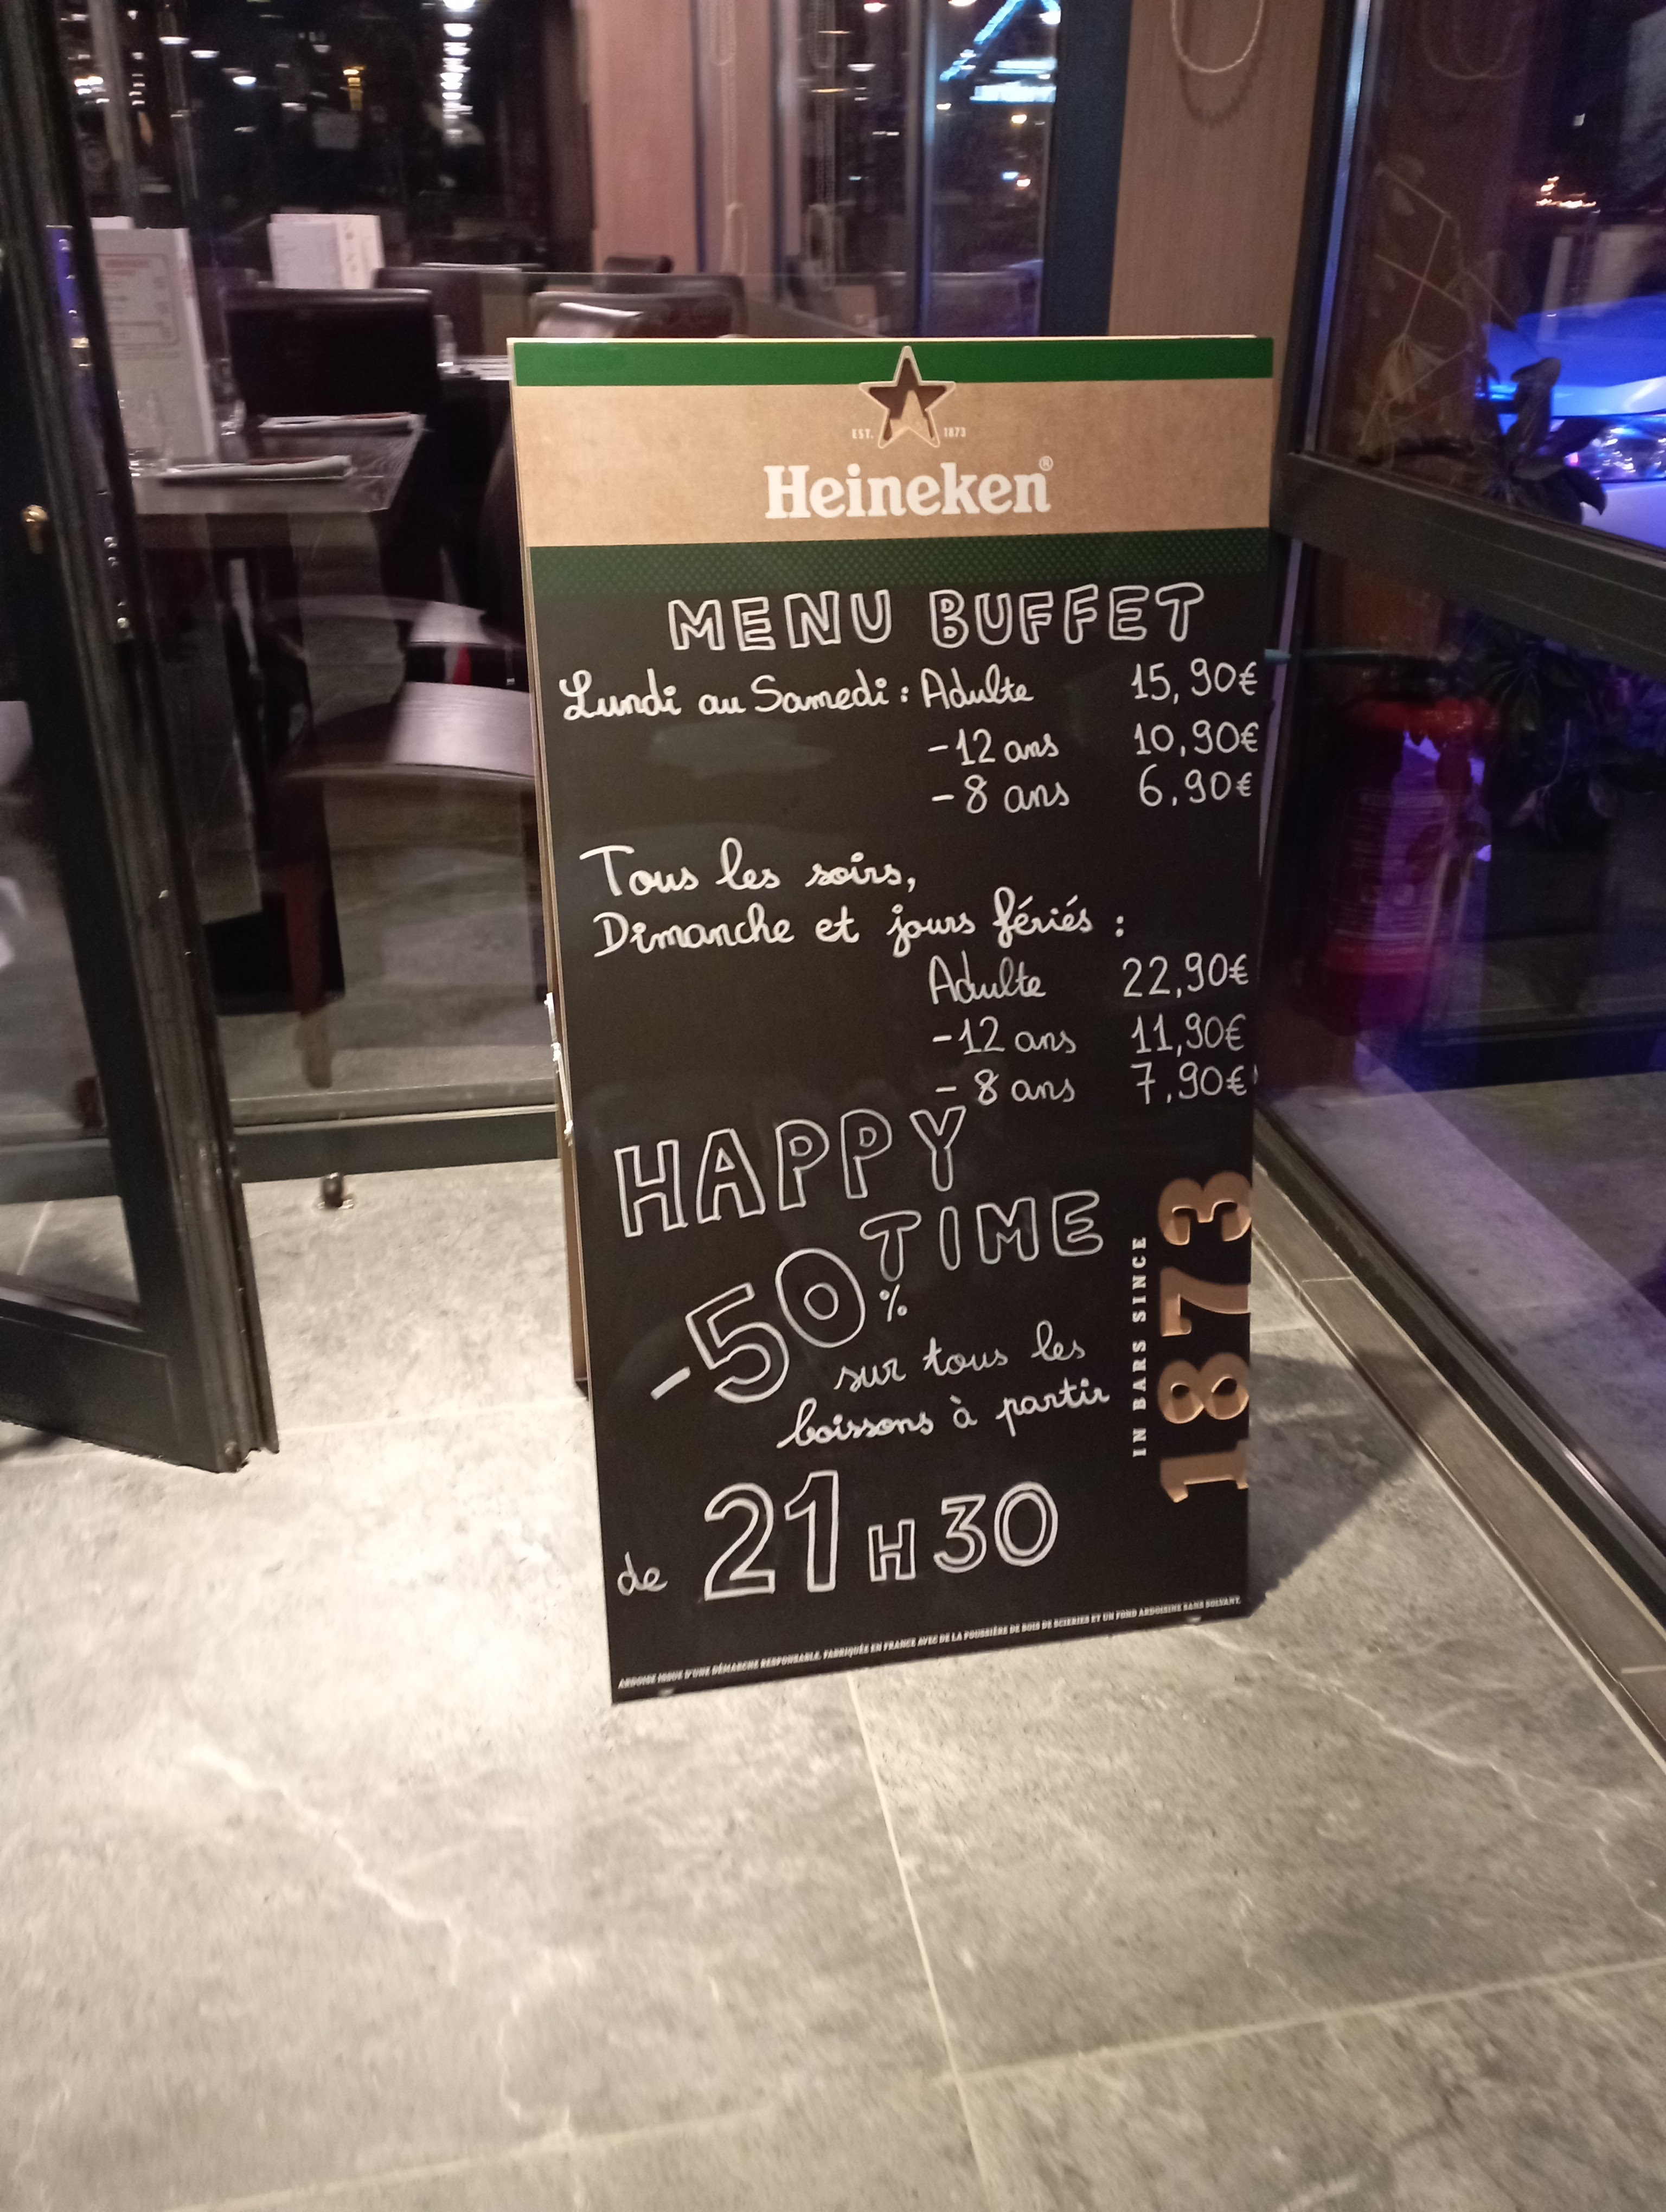 EST. 1873
Heineken®
MENU BUFFET
Lundi au Samedi : Adulte 15,90€
-12 ans 10,90€
- 8 ans 6,90€
Tous les soirs,
Dimanche et jours fériés :
Adulte 22,90€
-12 ans 11,90€
- 8 ans 7,90€
HAPPY
TIME
-50%
sur tous les
boissons à partir
de 21H30
IN BARS SINCE
1873
ARDOISE ISSUE D'UNE DÉMARCHE RESPONSABLE. FABRIQUÉE EN FRANCE AVEC DE LA POUSSIÈRE DE BOIS DE SCIERIES ET UN FOND ARDOISINE SANS SOLVANT.